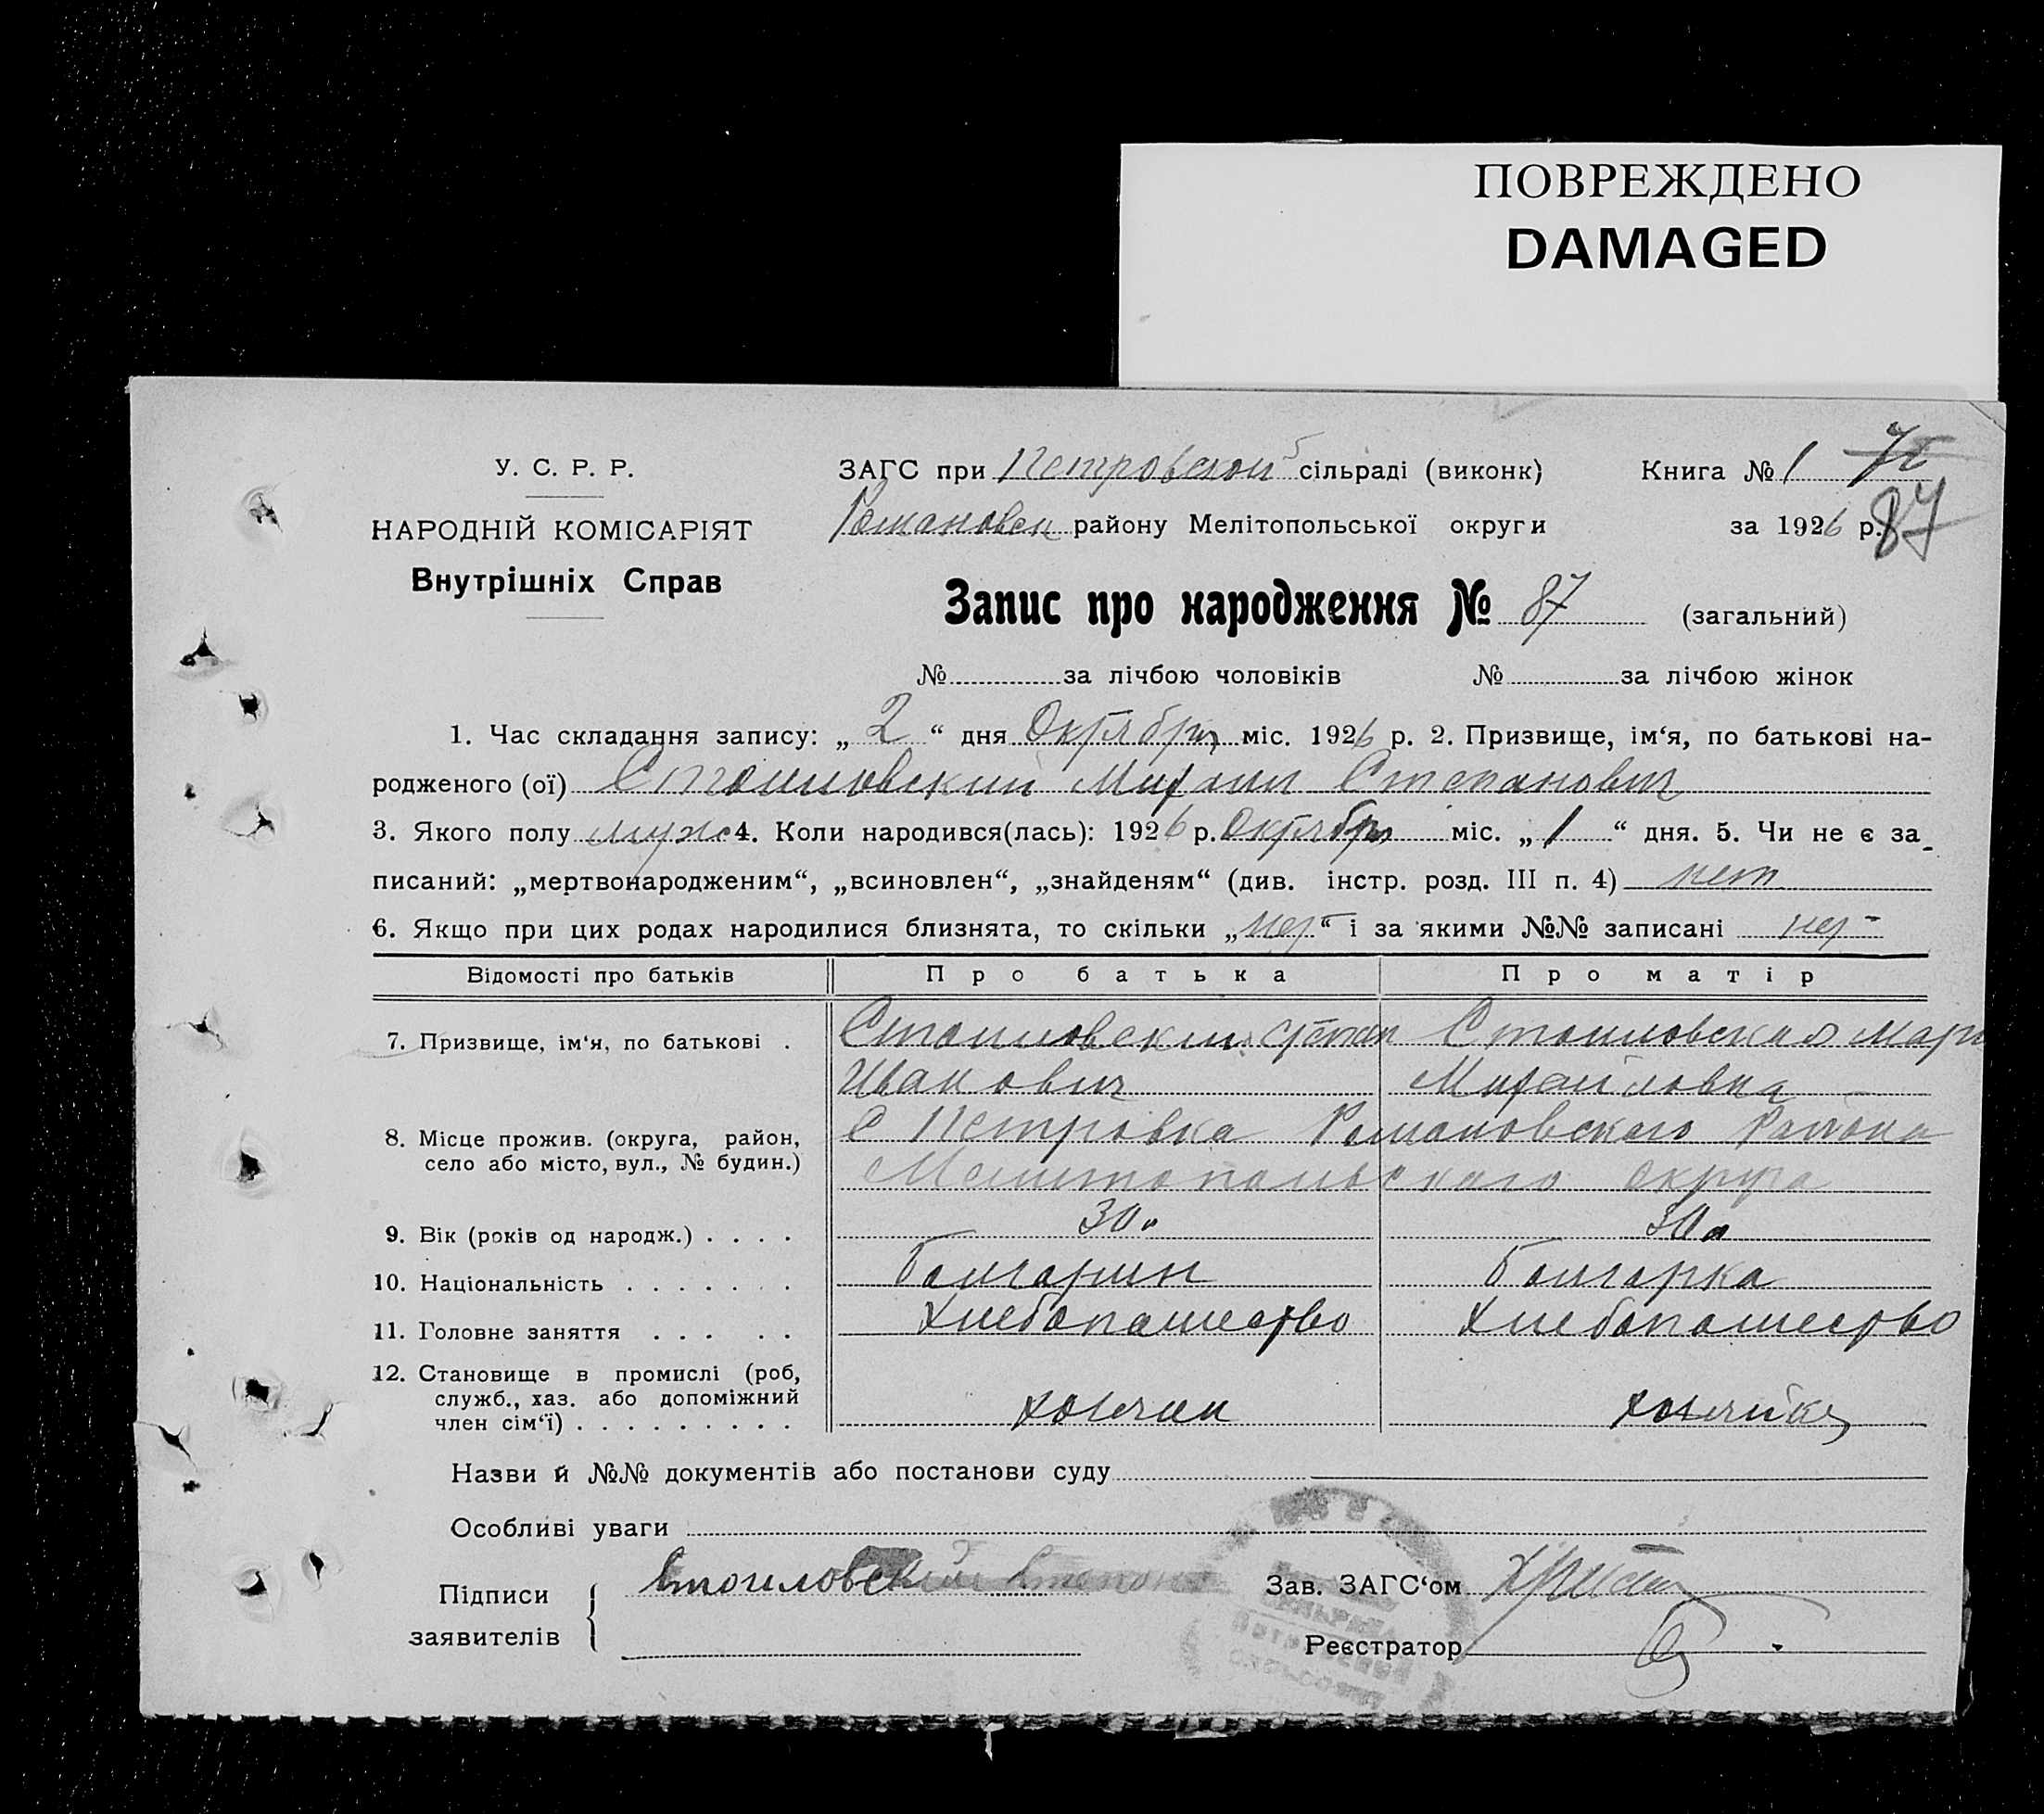 ПОВРЕЖДЕНО
DAMAGED
У. С. Р. Р.
НАРОДНІЙ КОМІСАРІЯТ
Внутрішніх Справ
ЗАГС при Петровской сільраді (виконк) Книга № 1 72
Романовск району Мелітопольської округи за 1926 р. 87
Запис про народження № 87 (загальний)
№ за лічбою чоловіків № за лічбою жінок
1. Час складання запису: „ 2 “ дня Октября міс. 1926 р. 2. Призвище, ім‘я, по батькові на-
родженого (ої) Стоиловский Михаил Степанович
3. Якого полу муж 4. Коли народився(лась): 1926 р. Октября міс. „ 1 “ дня. 5. Чи не є за-
писаний: „мертвонародженим“, „всиновлен“, „знайденям“ (див. інстр. розд. III п. 4) нет
6. Якщо при цих родах народилися близнята, то скільки „нет“ і за якими №№ записані нет
Відомості про батьків Про батька Про матір
7. Призвище, ім‘я, по батькові . Стоиловский Степан Стоиловская Мари
Иванович Михайловна
8. Місце прожив. (округа, район, село або місто, вул., № будин.) С Петровка Романовского Района
Мелитопольского округа
9. Вік (років од народж.) . . . . 30 30
10. Національність . . . . . . . болгарин болгарка
11. Головне заняття . . . . . Хлебопашество Хлебопашество
12. Становище в промислі (роб,
служб., хаз. або допоміжний
член сім‘ї) . . . . . . . . . хозяин хозяйка
Назви й №№ документів або постанови суду
Особливі уваги
Підписи Стоиловский Степан Зав. ЗАГС‘ом
заявителів Реєстратор